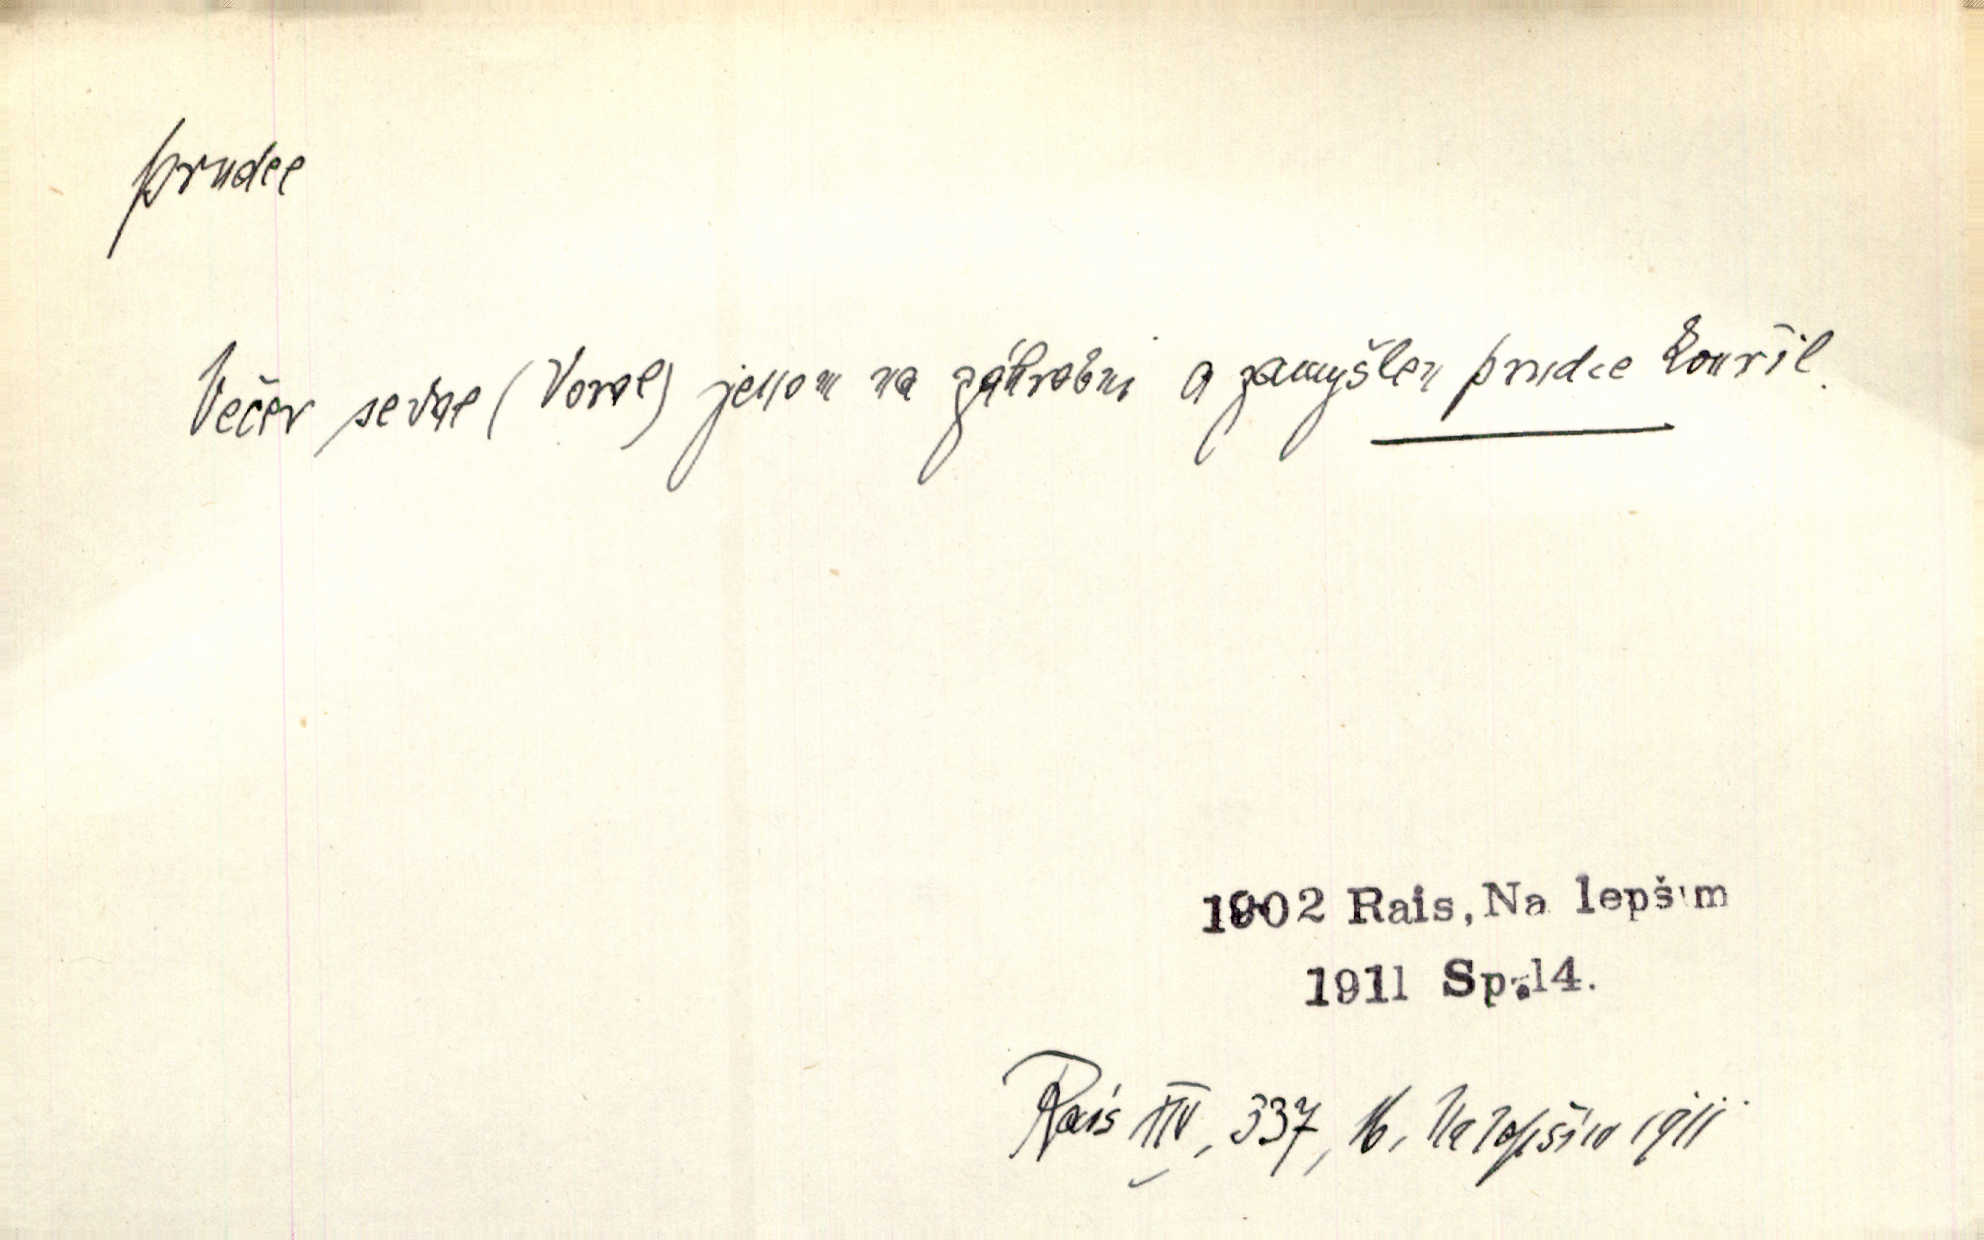 prudce
Večer seděl (Voral) jenom na záhrobni a zamyšlen prudce kouřil.
1902 Rais, Na lepším
1911 Sp.14.
Rais XIV, 337, 16, Na lepším 1911